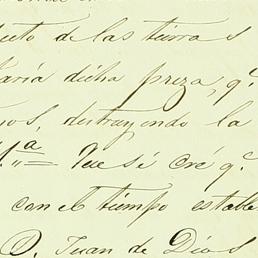 de las tierras
dicha preza, q.e
destruyendo la
M.a = Que si cré q.e
con el tiempo estable
D. Juan de Dios